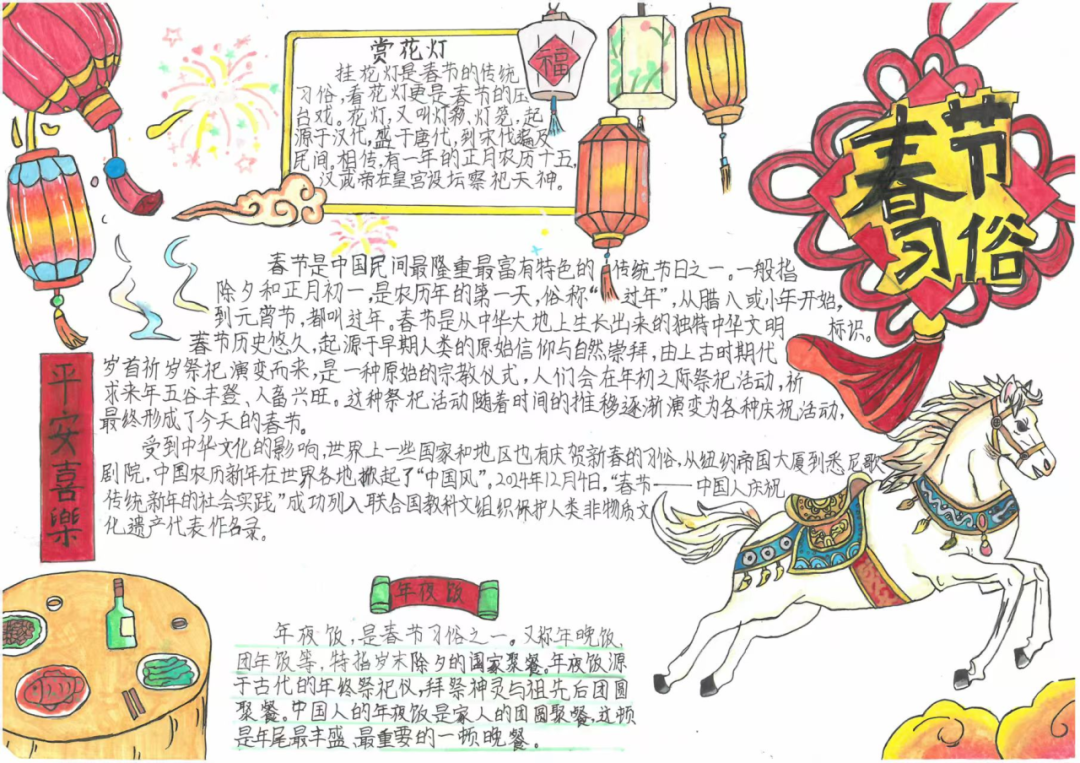 赏花灯
挂花灯是春节的传统
习俗,看花灯更是春节的压
台戏。花灯,又叫灯彩,灯笼,起
源于汉代,盛于唐代,到宋代遍及
民间。相传,有一年的正月农历十五,
汉武帝在皇宫设坛祭祀天神。
福
春节
习俗
春节是中国民间最隆重最富有特色的传统节日之一。一般指
除夕和正月初一,是农历年的第一天,俗称“过年”,从腊八或小年开始,
到元宵节,都叫过年。春节是从中华大地上生长出来的独特中华文明标识。
春节历史悠久,起源于早期人类的原始信仰与自然崇拜,由上古时期代
岁首祈岁祭祀演变而来,是一种原始的宗教仪式,人们会在年初之际祭祀活动,祈
求来年五谷丰登、人畜兴旺。这种祭祀活动随着时间的推移逐渐演变为各种庆祝活动,
最终形成了今天的春节。
受到中华文化的影响,世界上一些国家和地区也有庆贺新春的习俗,从纽约帝国大厦到悉尼歌
剧院,中国农历新年在世界各地掀起了“中国风”。2024年12月4日,“春节——中国人庆祝
传统新年的社会实践”成功列入联合国教科文组织保护人类非物质文
化遗产代表作名录。
平安喜樂
年夜饭
年夜饭,是春节习俗之一。又称年晚饭、
团年饭等,特指岁末除夕的阖家聚餐。年夜饭源
于古代的年终祭祀仪,拜祭神灵与祖先后团圆
聚餐。中国人的年夜饭是家人的团圆聚餐,这顿
是年尾最丰盛、最重要的一顿晚餐。